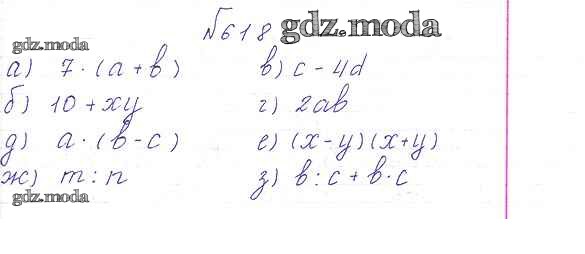 №618 gdz.moda
gdz.moda
а) 7·(a+b) в) c-4d
б) 10+xy г) 2ab
д) a·(b-c) е) (x-y)(x+y)
ж) m:n з) b:c+b·c
gdz.moda